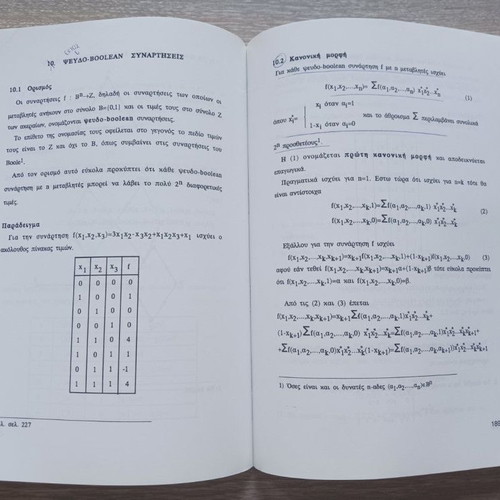 10. ΨΕΥΔΟ-BOOLEAN ΣΥΝΑΡΤΗΣΕΙΣ
10.1 Ορισμός
Οι συναρτήσεις f : Bⁿ→Z, δηλαδή οι συναρτήσεις των οποίων οι
μεταβλητές ανήκουν στο σύνολο B={0,1} και οι τιμές τους στο σύνολο Z
των ακεραίων, ονομάζονται ψευδο-boolean συναρτήσεις.
Το επίθετο της ονομασίας τους οφείλεται στο γεγονός το πεδίο τιμών
τους είναι το Z και όχι το B, όπως συμβαίνει στις συναρτήσεις του
Boole¹.
Από τον ορισμό αυτό εύκολα προκύπτει ότι κάθε ψευδο-boolean
συνάρτηση με n μεταβλητές μπορεί να λάβει το πολύ 2ⁿ διαφορετικές
τιμές.
Παράδειγμα
Για την συνάρτηση f(x₁,x₂,x₃)=3x₁x₂-x₃x₂+x₁x₂x₃+x₁ ισχύει ο
ακόλουθος πίνακας τιμών.
x₁ x₂ x₃ f
0 0 0 0
1 0 0 1
0 1 0 0
0 0 1 0
1 1 0 4
1 0 1 1
0 1 1 -1
1 1 1 4
λ. σελ. 227
10.2 Κανονική μορφή
Για κάθε ψευδο-boolean συνάρτηση f με n μεταβλητές ισχύει
f(x₁,x₂,...,xₙ)= Σf(α₁,α₂,...,αₙ) x₁*x₂*...xₙ* (1)
x₁ όταν α₁=1
όπου x₁*= και το άθροισμα Σ περιλαμβάνει συνολικά
1-x₁ όταν α₁=0
2ⁿ προσθετέους¹
Η (1) ονομάζεται πρώτη κανονική μορφή και αποδεικνύεται
επαγωγικά.
Πραγματικά ισχύει για n=1. Εστω τώρα ότι ισχύει για n=k τότε θα
είναι αντίστοιχα
f(x₁,x₂,...,xₖ,1)=Σf(α₁,α₂,...,αₖ,1) x₁*x₂*...xₖ*
(2)
f(x₁,x₂,...,xₖ,0)=Σf(α₁,α₂,...,αₖ,0) x₁*x₂*...xₖ*
Εξάλλου για την συνάρτηση f ισχύει
f(x₁,x₂,...,xₖ,xₖ₊₁)=xₖ₊₁f(x₁,x₂,...,xₖ,1)+(1-xₖ₊₁)f(x₁,x₂,...,xₖ,0) (3)
αφού εάν τεθεί f(x₁,x₂,...,xₖ,xₖ₊₁)=xₖ₊₁α+(1-xₖ₊₁)β τότε εύκολα προκύπτει
ότι f(x₁,x₂,...,xₖ,1)=α και f(x₁,x₂,...,xₖ,0)=β.
Από τις (2) και (3) έπεται
f(x₁,x₂,...,xₖ,xₖ₊₁)=xₖ₊₁Σf(α₁,α₂,...,αₖ,1) x₁*x₂*...xₖ*+
(1-xₖ₊₁)Σf(α₁,α₂,...,αₖ,0) x₁*x₂*...xₖ*=Σf(α₁,α₂,...,αₖ,1)x₁*x₂*...xₖ*xₖ₊₁+
+Σf(α₁,α₂,...,αₖ,0)x₁*x₂*...xₖ*(1-xₖ₊₁)=Σf(α₁,α₂,...,αₖ,αₖ₊₁)x₁*x₂*...xₖ*xₖ₊₁*
1) Όσες είναι και οι δυνατές n-αδες (α₁,α₂,...,αₙ)∈Bⁿ
189